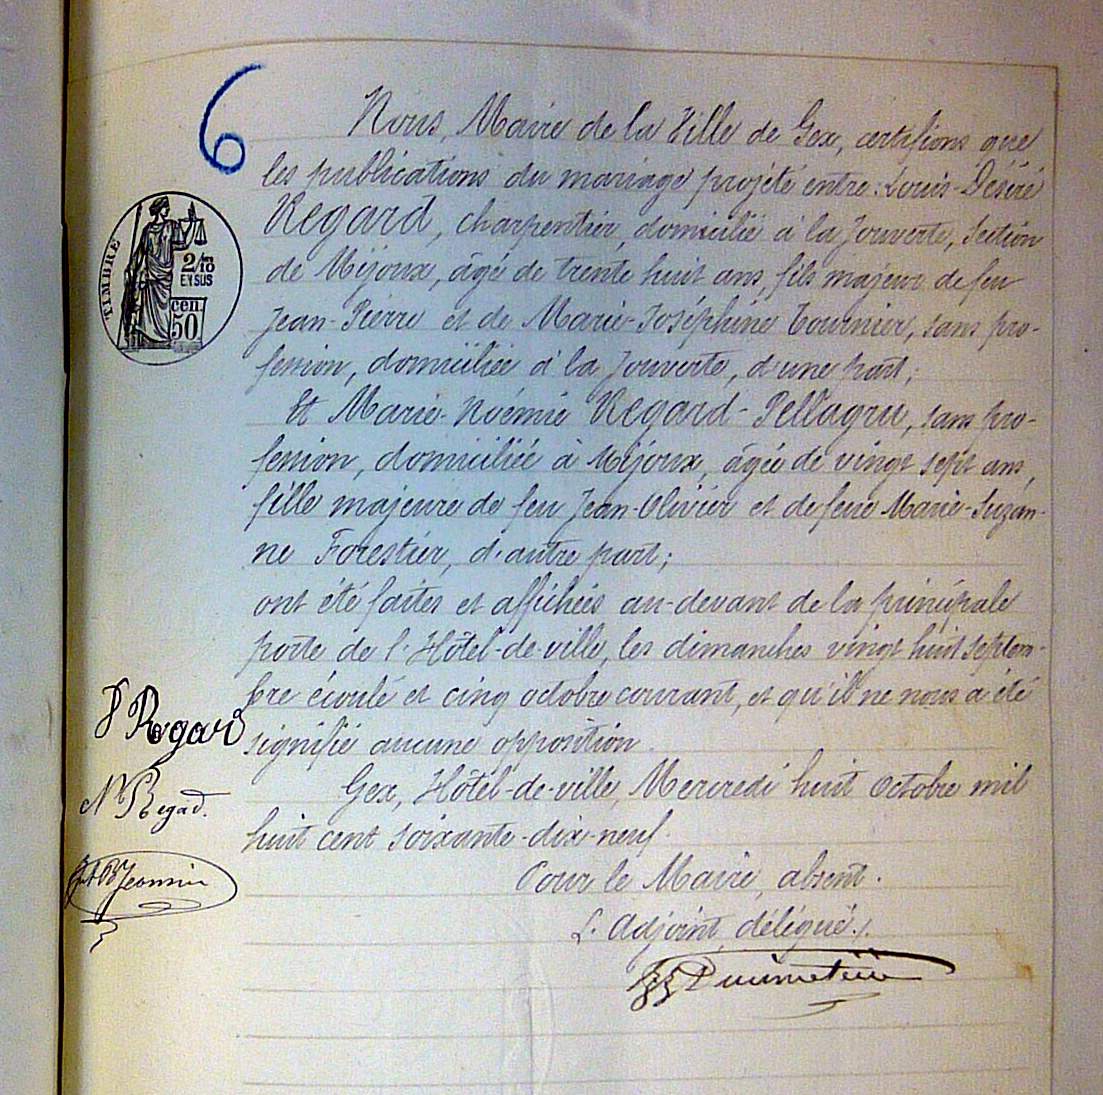 6
Nous, Maire de la Ville de Gex, certifions que
les publications du mariage projeté entre : Louis-Désiré
Regard, charpentier, domicilié à la Jouverte, Section
de Mijoux, âgé de trente huit ans, fils majeur de feu
Jean-Pierre et de Marie-Joséphine Tournier, sans pro-
fession, domiciliée à la Jouverte, d'une part;
Et Marie-Noémie Regard-Pellagru, sans pro-
fession, domiciliée à Mijoux, âgée de vingt sept ans,
fille majeure de feu Jean-Olivier et de feue Marie-Suzan-
ne Forestier, d'autre part;
ont été faites et affichées au-devant de la principale
porte de l'Hôtel-de-ville, les dimanches vingt huit septem-
bre écoulé et cinq octobre courant, et qu'il ne nous a été
signifié aucune opposition.
Gex, Hôtel-de-ville, Mercredi huit Octobre mil
huit cent soixante-dix-neuf.
Pour le Maire, absent.
L'Adjoint, délégué./.
TIMBRE
2/10
EN SUS
50 cen.
Regard
N Regad.
Jeannin